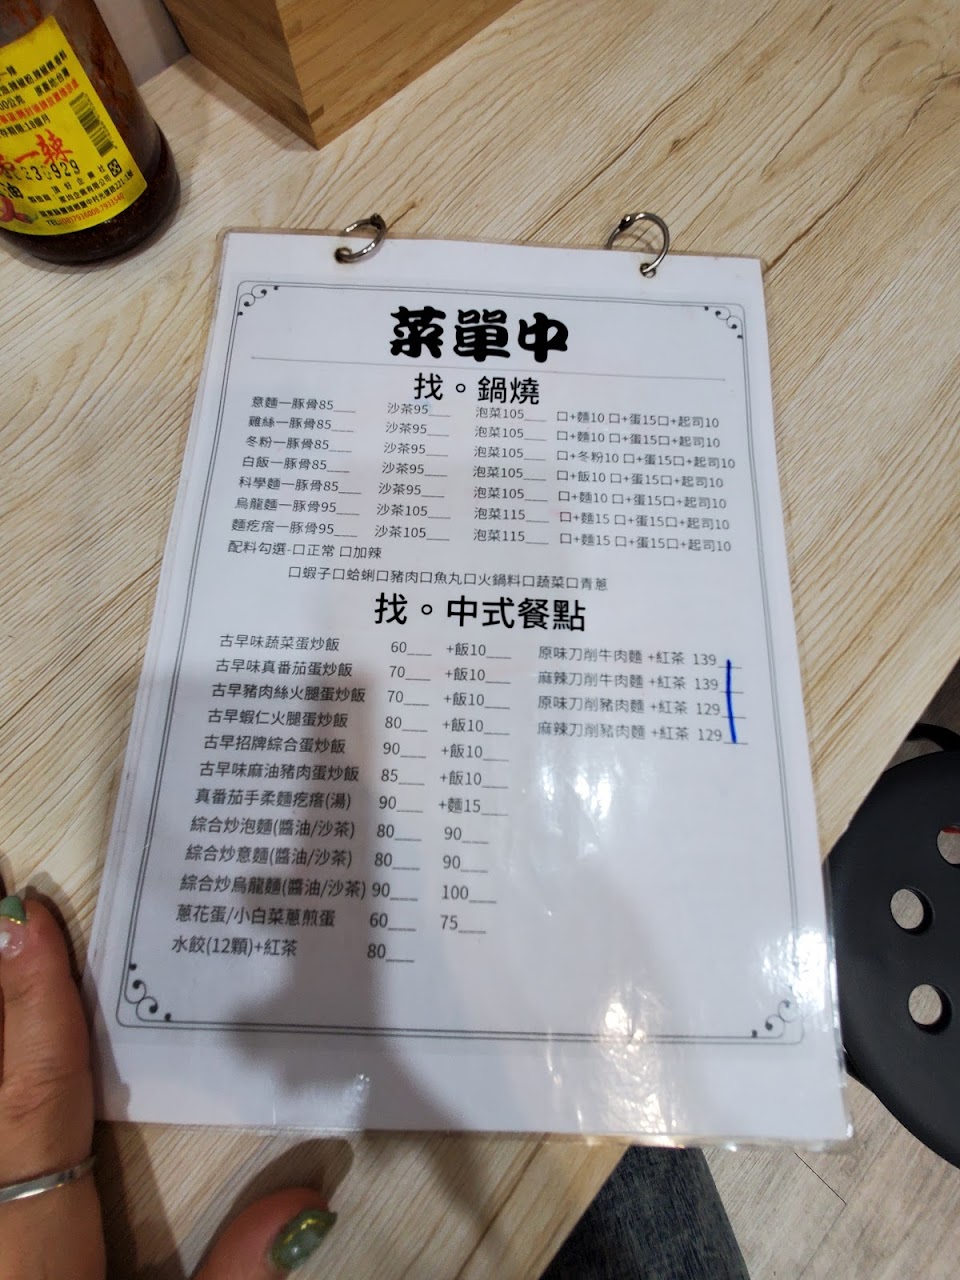 辣一
第一辣
23 0929
油
TEL:(08)7936008.7933540
菜單中
找。鍋燒
意麵一豚骨85___ 沙茶95___ 泡菜105___ 口+麵10 口+蛋15口+起司10
雞絲一豚骨85___ 沙茶95___ 泡菜105___ 口+麵10 口+蛋15口+起司10
冬粉一豚骨85___ 沙茶95___ 泡菜105___ 口+冬粉10 口+蛋15口+起司10
白飯一豚骨85___ 沙茶95___ 泡菜105___ 口+飯10 口+蛋15口+起司10
科學麵一豚骨85___ 沙茶95___ 泡菜105___ 口+麵10 口+蛋15口+起司10
烏龍麵一豚骨95___ 沙茶105___ 泡菜115___ 口+麵15 口+蛋15口+起司10
麵疙瘩一豚骨95___ 沙茶105___ 泡菜115___ 口+麵15 口+蛋15口+起司10
配料勾選-口正常 口加辣
口蝦子口蛤蜊口豬肉口魚丸口火鍋料口蔬菜口青蔥
找。中式餐點
古早味蔬菜蛋炒飯 60___ +飯10___
古早味真番茄蛋炒飯 70___ +飯10___
古早豬肉絲火腿蛋炒飯 70___ +飯10___
古早蝦仁火腿蛋炒飯 80___ +飯10___
古早招牌綜合蛋炒飯 90___ +飯10___
古早味麻油豬肉蛋炒飯 85___ +飯10___
真番茄手柔麵疙瘩(湯) 90___ +麵15___
綜合炒泡麵(醬油/沙茶) 80___ 90___
綜合炒意麵(醬油/沙茶) 80___ 90___
綜合炒烏龍麵(醬油/沙茶) 90___ 100___
蔥花蛋/小白菜蔥煎蛋 60___ 75___
水餃(12顆)+紅茶 80___
原味刀削牛肉麵 +紅茶 139___
麻辣刀削牛肉麵 +紅茶 139___
原味刀削豬肉麵 +紅茶 129___
麻辣刀削豬肉麵 +紅茶 129___